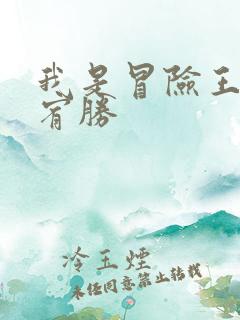 我是冒險王
宵勝
冷玉煙
未經同意禁止轉載